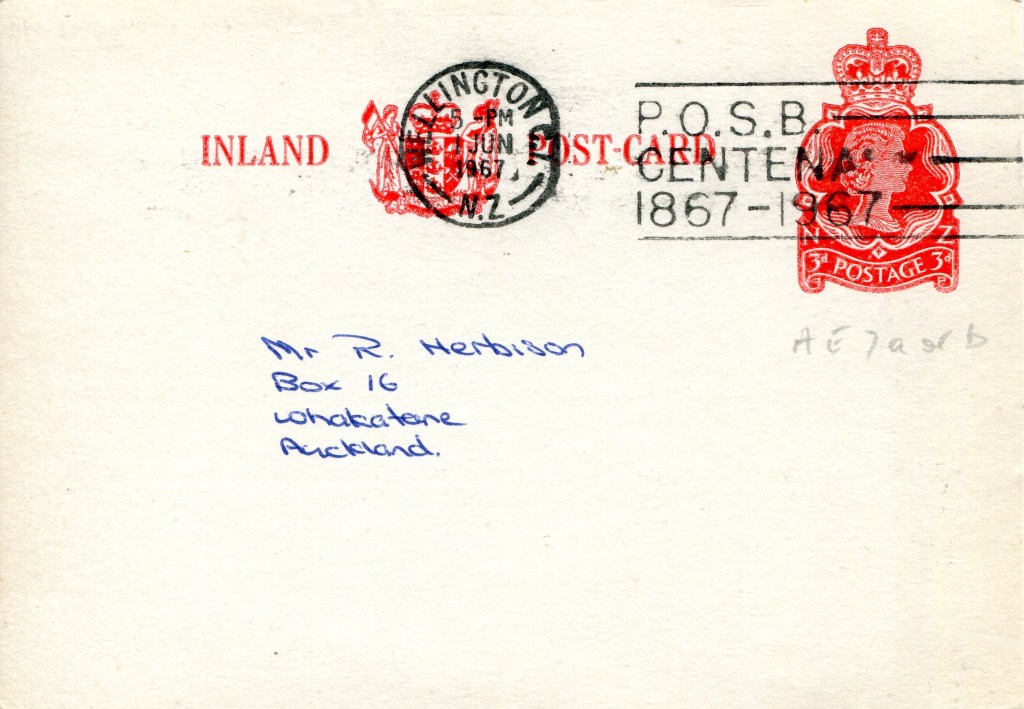 INLAND POST-CARD
WELLINGTON C1
5 -PM
1 JUN
1967
N.Z
P.O.S.B.
CENTENARY
1867-1967
N Z
3d POSTAGE 3d
Mr R. Herbison
Box 16
Whakatane
Auckland.